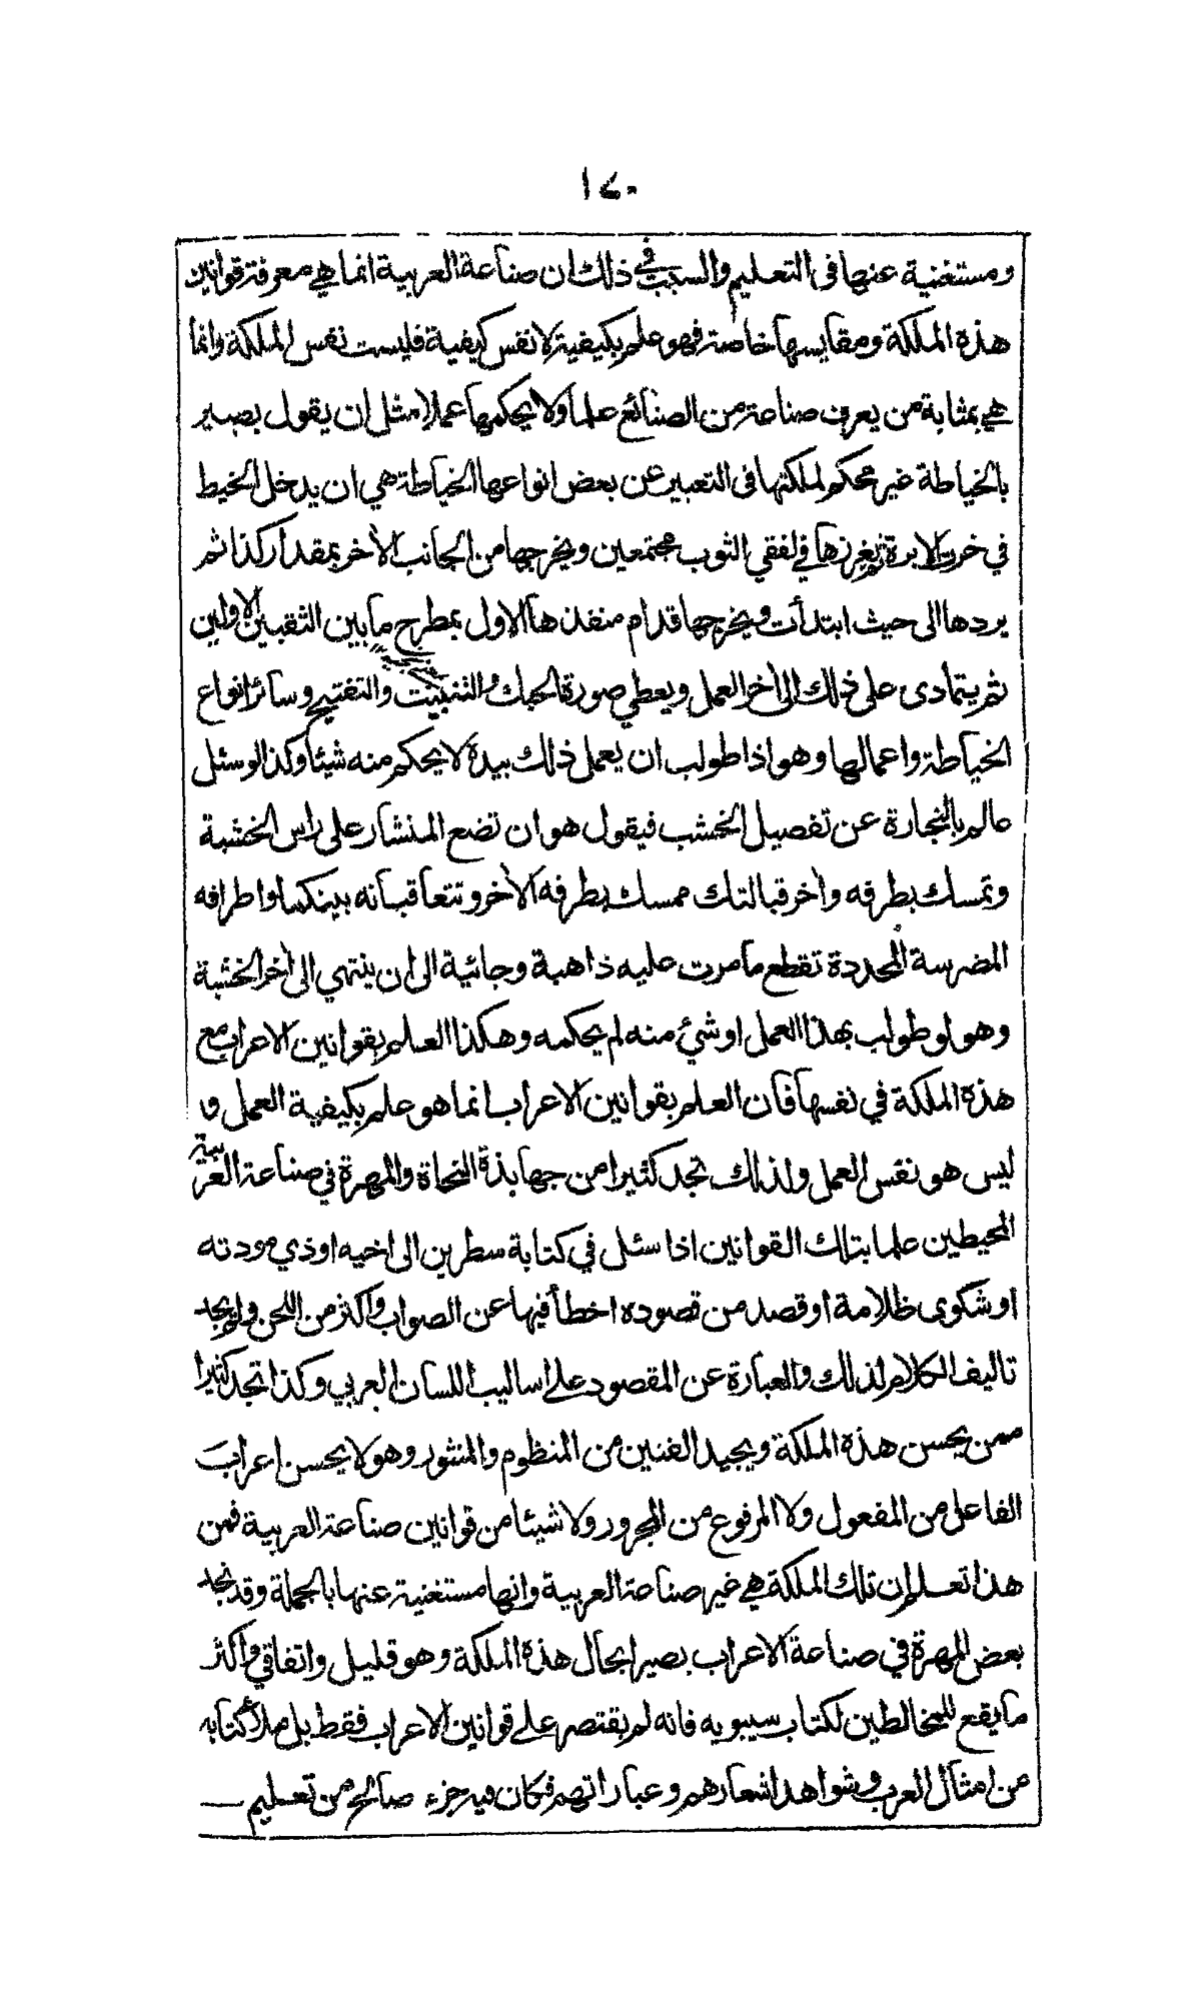 ١٤٠
ومستغنية عنها فى التعليم والسبب في ذلك ان صناعة العربية انما هي معرفة قوانين
هذه الملكة ومقايسها خاصة فهو علم بكيفية لا نفس كيفية فليست نفس الملكة وانما
هي بمثابة من يعرف صناعة من الصنائع علما ولا يحكمها عملا مثل ان يقول بصير
بالخياطة غير محكم لملكتها فى التعبير عن بعض انواعها الخياطة هي ان يدخل الخيط
في خرت الابرة ثم يغرزها في لفقي الثوب مجتمعين ويخرجها من الجانب الأخر بمقدار كذا ثم
يردها الى حيث ابتدأت ويخرجها قدام منفذها الاول بمطرح ما بين الثقبين الاولين
ثم يتمادى على ذلك الى أخر العمل ويعطي صورة الحبك والتنبيت والتفتيح وسائر انواع
الخياطة واعمالها وهو اذا طولب ان يعمل ذلك بيده لا يحكم منه شيئا وكذا لو سئل
عالم بالنجارة عن تفصيل الخشب فيقول هو ان تضع المنشار على راس الخشبة
وتمسك بطرفه وأخر قبالتك ممسك بطرفه الأخر وتتعاقبانه بينكما واطرافه
المضرسة المحددة تقطع ما مرت عليه ذاهبة وجائية الى ان ينتهي الى أخر الخشبة
وهو لو طولب بهذا العمل او شئ منه لم يحكمه وهكذا العلم بقوانين الاعراب مع
هذه الملكة في نفسها فأن العلم بقوانين الاعراب انما هو علم بكيفية العمل و
ليس هو نفس العمل ولذلك تجد كثيرا من جهابذة النحاة والمهرة في صناعة العربية
المحيطين علما بتلك القوانين اذا سئل في كتابة سطرين الى اخيه او ذي مودته
او شكوى ظلامة او قصد من قصوده اخطأ فيها عن الصواب واكثر من اللحن ولم يجد
تاليف الكلام لذلك والعبارة عن المقصود على اساليب اللسان العربي وكذا تجد كثيرا
ممن يحسن هذه الملكة ويجيد الفنين من المنظوم والمنثور وهو لا يحسن اعراب
الفاعل من المفعول ولا المرفوع من المجرور ولا شيئا من قوانين صناعة العربية فمن
هذا تعلم ان تلك الملكة هي غير صناعة العربية وانها مستغنية عنها بالجملة وقد نجد
بعض المهرة في صناعة الاعراب بصيرا بحال هذه الملكة وهو قليل واتفاقي واكثر
ما يقع للمخالطين لكتاب سيبويه فانه لم يقتصر على قوانين الاعراب فقط بل ملأ كتابه
من امثال العرب وشواهد اشعارهم وعباراتهم فكان فيه جزء صالح من تعليم